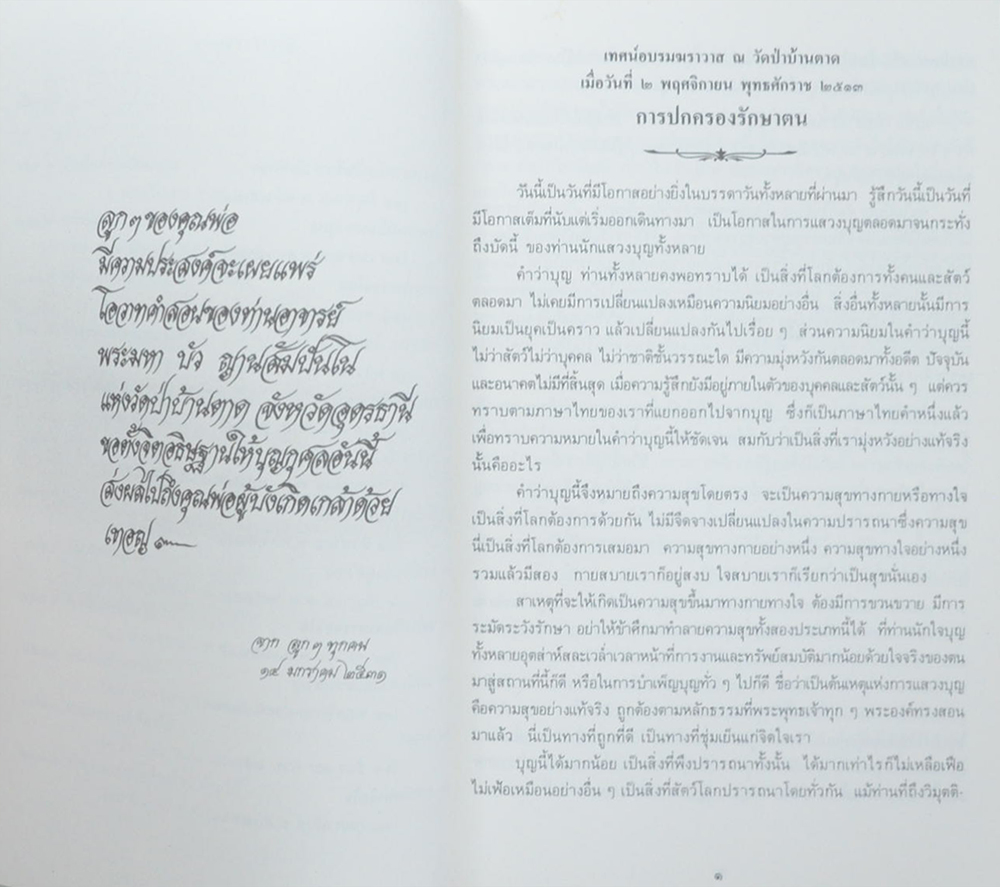 ลูก ๆ ของคุณพ่อ
มีความประสงค์จะเผยแพร่
โอวาทคำสอนของท่านอาจารย์
พระมหา บัว ญาณสัมปันโน
แห่งวัดป่าบ้านตาด จังหวัดอุดรธานี
ขอตั้งจิตอธิษฐานให้บุญกุศลอันนี้
ส่งผลไปถึงคุณพ่อผู้บังเกิดเกล้าด้วย
เทอญ ๛
จาก ลูก ๆ ทุกคน
๑๕ มกราคม ๒๕๓๑
เทศน์อบรมฆราวาส ณ วัดป่าบ้านตาด
เมื่อวันที่ ๒ พฤศจิกายน พุทธศักราช ๒๕๑๓
การปกครองรักษาตน
วันนี้เป็นวันที่มีโอกาสอย่างยิ่งในบรรดาวันทั้งหลายที่ผ่านมา รู้สึกวันนี้เป็นวันที่
มีโอกาสเต็มที่นับแต่เริ่มออกเดินทางมา เป็นโอกาสในการแสวงบุญตลอดมาจนกระทั่ง
ถึงบัดนี้ ของท่านนักแสวงบุญทั้งหลาย
คำว่าบุญ ท่านทั้งหลายคงพอทราบได้ เป็นสิ่งที่โลกต้องการทั้งคนและสัตว์
ตลอดมา ไม่เคยมีการเปลี่ยนแปลงเหมือนความนิยมอย่างอื่น สิ่งอื่นทั้งหลายนั้นมีการ
นิยมเป็นยุคเป็นคราว แล้วเปลี่ยนแปลงกันไปเรื่อย ๆ ส่วนความนิยมในคำว่าบุญนี้
ไม่ว่าสัตว์ไม่ว่าบุคคล ไม่ว่าชาติชั้นวรรณะใด มีความมุ่งหวังกันตลอดมาทั้งอดีต ปัจจุบัน
และอนาคตไม่มีที่สิ้นสุด เมื่อความรู้สึกยังมีอยู่ภายในตัวของบุคคลและสัตว์นั้น ๆ แต่ควร
ทราบตามภาษาไทยของเราที่แยกออกไปจากบุญ ซึ่งก็เป็นภาษาไทยคำหนึ่งแล้ว
เพื่อทราบความหมายในคำว่าบุญนี้ให้ชัดเจน สมกับว่าเป็นสิ่งที่เรามุ่งหวังอย่างแท้จริง
นั้นคืออะไร
คำว่าบุญนี้จึงหมายถึงความสุขโดยตรง จะเป็นความสุขทางกายหรือทางใจ
เป็นสิ่งที่โลกต้องการด้วยกัน ไม่มีจืดจางเปลี่ยนแปลงในความปรารถนาซึ่งความสุข
นี้เป็นสิ่งที่โลกต้องการเสมอมา ความสุขทางกายอย่างหนึ่ง ความสุขทางใจอย่างหนึ่ง
รวมแล้วมีสอง กายสบายเราก็อยู่สงบ ใจสบายเราก็เรียกว่าเป็นสุขนั่นเอง
สาเหตุที่จะให้เกิดเป็นความสุขขึ้นมาทางกายทางใจ ต้องมีการขวนขวาย มีการ
ระมัดระวังรักษา อย่าให้ข้าศึกมาทำลายความสุขทั้งสองประเภทนี้ได้ ที่ท่านนักใจบุญ
ทั้งหลายอุตส่าห์สละเวล่ำเวลาหน้าที่การงานและทรัพย์สมบัติมากน้อยด้วยใจจริงของตน
มาสู่สถานที่นี้ก็ดี หรือในการบำเพ็ญบุญทั่ว ๆ ไปก็ดี ชื่อว่าเป็นต้นเหตุแห่งการแสวงบุญ
คือความสุขอย่างแท้จริง ถูกต้องตามหลักธรรมที่พระพุทธเจ้าทุก ๆ พระองค์ทรงสอน
มาแล้ว นี่เป็นทางที่ถูกที่ดี เป็นทางที่ชุ่มเย็นแก่จิตใจเรา
บุญนี้ได้มากน้อย เป็นสิ่งที่พึงปรารถนาทั้งนั้น ได้มากเท่าไรก็ไม่เหลือเฟือ
ไม่เฟ้อเหมือนอย่างอื่น ๆ เป็นสิ่งที่สัตว์โลกปรารถนาโดยทั่วกัน แม้ท่านที่ถึงวิมุตติ-
๑